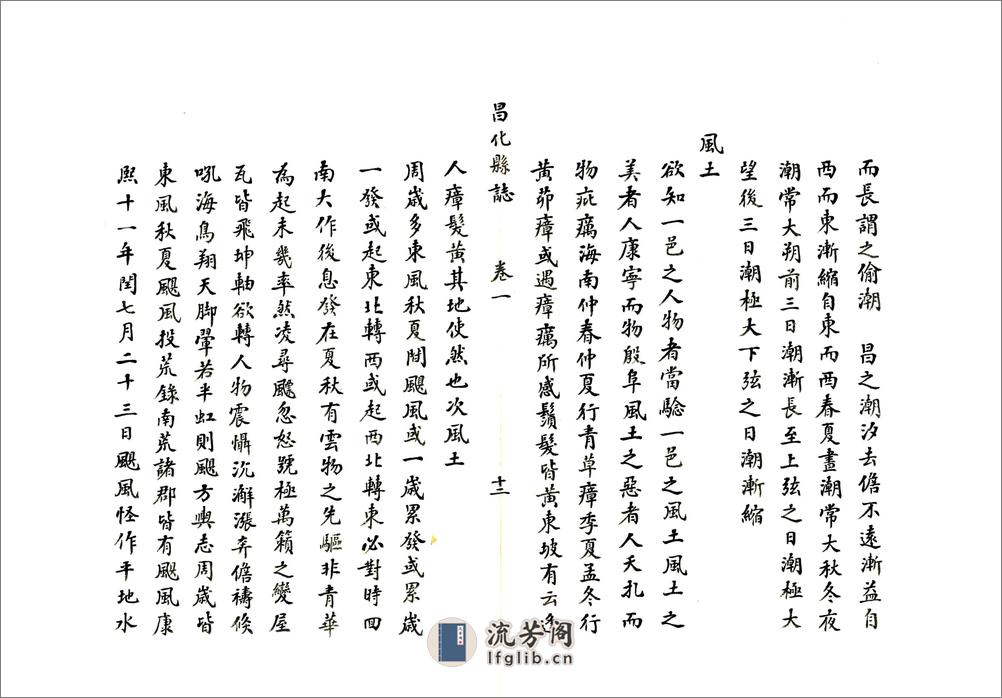 而長謂之偷潮　昌之潮汐去儋不遠漸益自
西而東漸縮自東而西春夏晝潮常大秋冬夜
潮常大朔前三日潮漸長至上弦之日潮極大
望後三日潮極大下弦之日潮漸縮
風土
欲知一邑之人物者當驗一邑之風土風土之
美者人康寧而物殷阜風土之惡者人夭札而
物疵癘海南仲春仲夏行青草瘴季夏孟冬行
黃茆瘴或遇瘴癘所感鬚髮皆黃東坡有云
昌化縣誌　卷一　十二
人瘴髮黃其地使然也次風土
周歲多東風秋夏間颶風或一歲累發或累歲
一發或起東北轉西或起西北轉東必對時回
南大作後息發在夏秋有雲物之先驅非青華
為起未幾率然凌尋飋忽怒號極萬籟之變屋
瓦皆飛坤軸欲轉人物震懾沉澥漲奔儋禱候
吼海鳥翔天脚暈若半虹則颶方輿志周歲皆
東風秋夏颶風投荒錄南荒諸郡皆有颶風康
熙十一年閏七月二十三日颶風怪作平地水
流芳阁
lfglib.cn